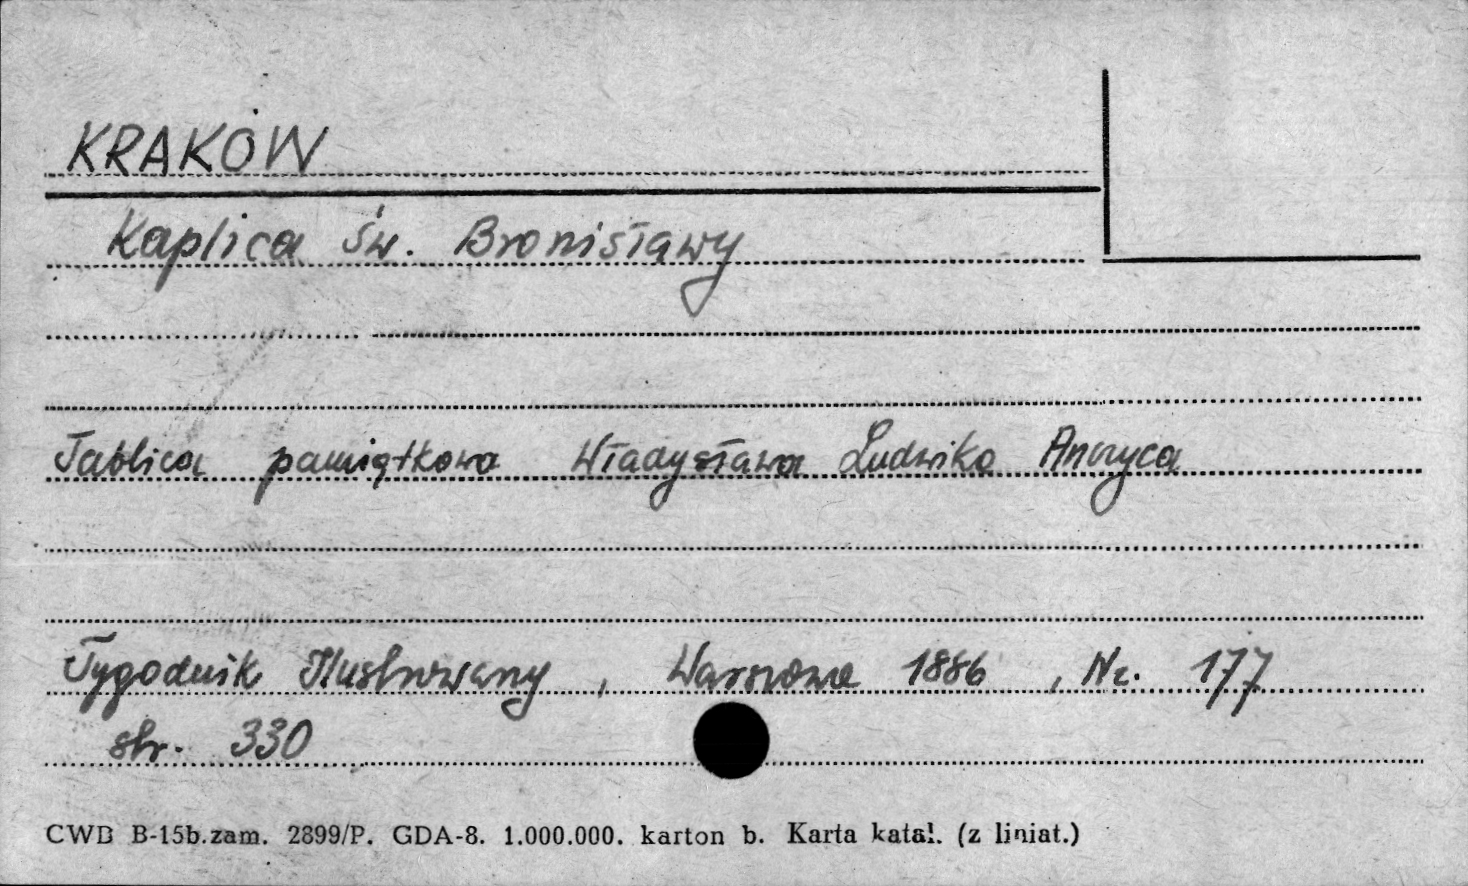 KRAKÓW
Kaplica św. Bronisławy
Tablica pamiątkowa Władysława Ludwika Anczyca
Tygodnik Ilustrowany, Warszawa 1886, Nr. 177
str. 330
CWD B-15b.zam. 2899/P. GDA-8. 1.000.000. karton b. Karta katal. (z liniat.)